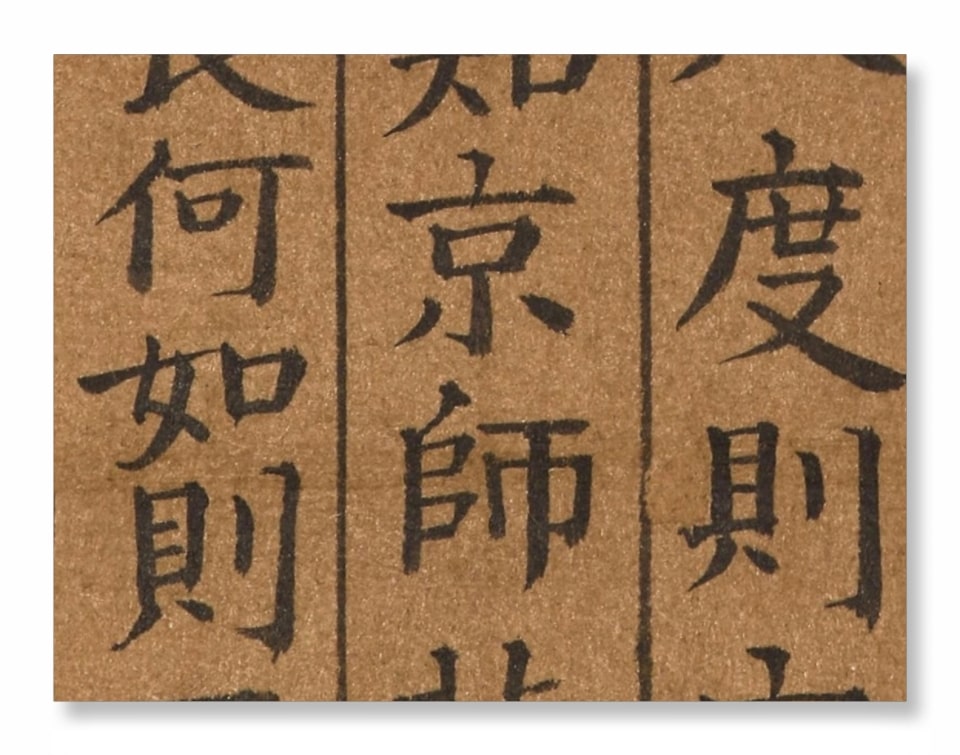 度則
京師
何如則